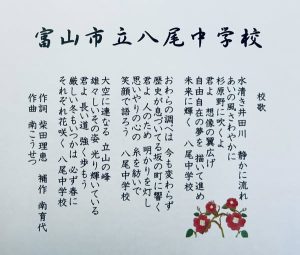 富山市立八尾中学校
校歌
水清き井田川 静かに流れ
あいの風さわやかに
杉原野に吹くよ
君よ 想像の翼広げ
自由自在の夢を 描いて進め
未来に輝く 八尾中学校
おわらの調べは 今も変わらず
歴史が息づいてる坂の町に響く
君よ 人のため 明かりを灯し
思いやりの心の 糸を紡いで
笑顔で語ろう 八尾中学校
大空に連なる 立山の峰
雄々しいその姿 光り輝いている
君よ 長い道 強く歩もう
厳しい冬もいつかは 必ず春に
それぞれ花咲く 八尾中学校
作詞 柴田理恵 補作 南育代
作曲 南こうせつ